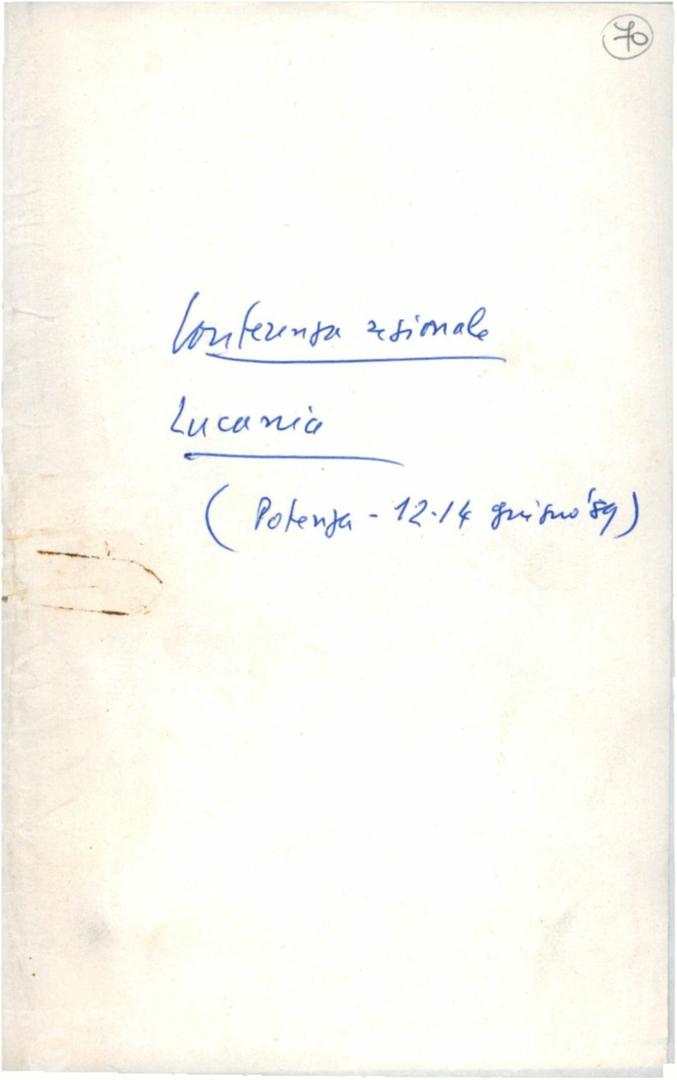 70
Conferenza regionale
Lucania
(Potenza - 12-14 giugno '59)